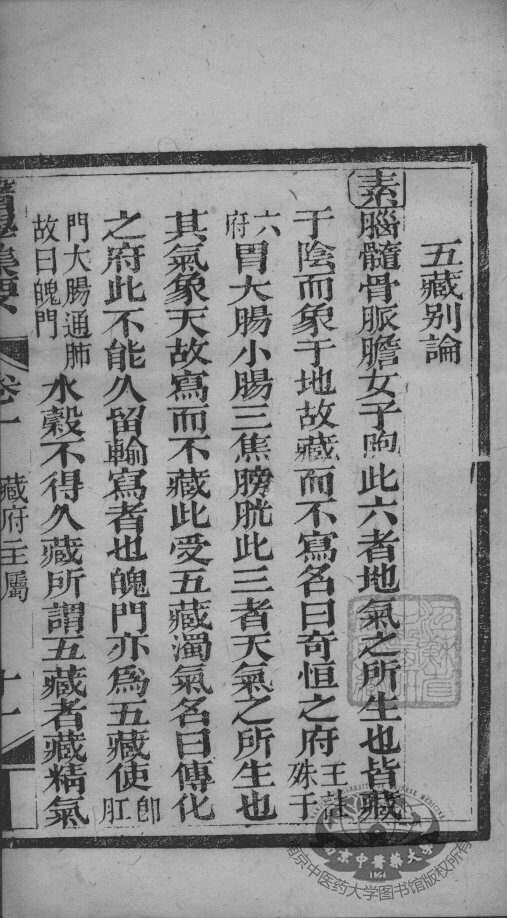 五藏别論
素腦髓骨脈膽女子胞此六者地氣之所生也皆藏
于陰而象于地故藏而不寫名曰奇恒之府王註殊于
六府胃大腸小腸三焦膀胱此三者天氣之所生也
其氣象天故寫而不藏此受五藏濁氣名曰傳化
之府此不能久留輸寫者也魄門亦爲五藏使卽肛
門大腸通肺故曰魄門水穀不得久藏所謂五藏者藏精氣
醫學集要
卷一
藏府主屬
十一
南京中醫藥大學
1954
南京中医药大学图书馆版权所有